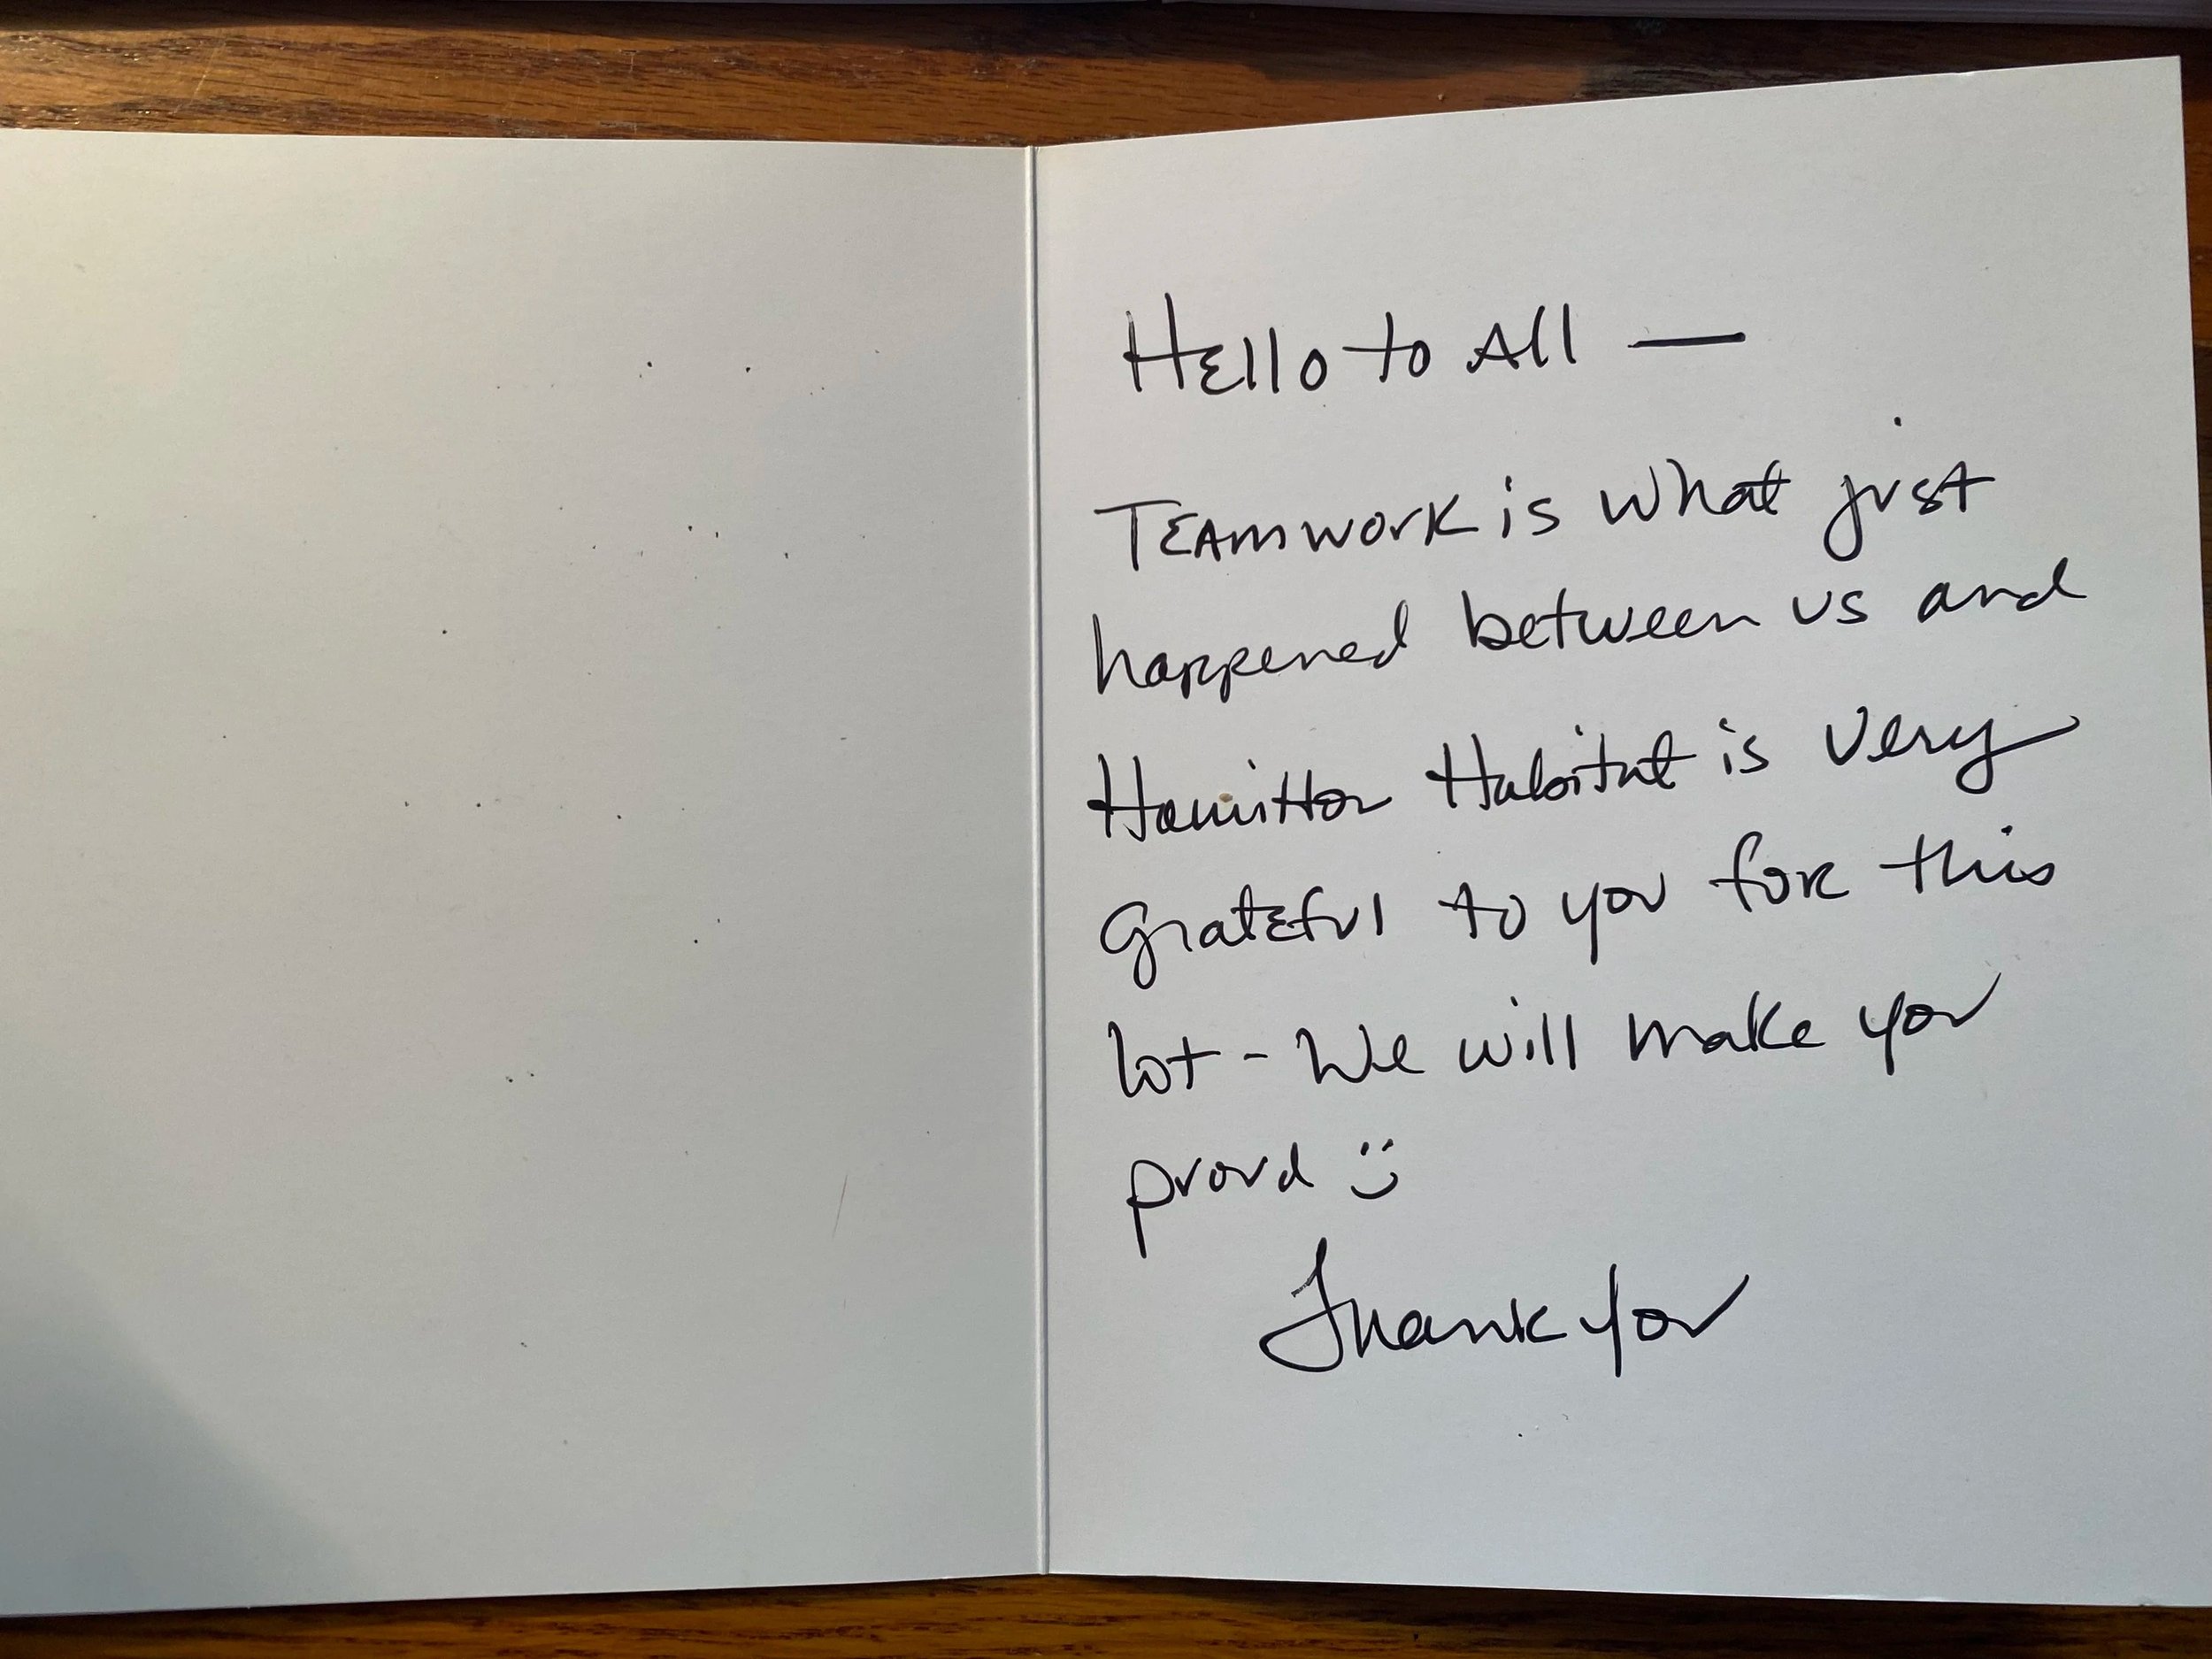 Hello to All —
Teamwork is what just
happened between us and
Hamilton Habitat is very
grateful to you for this
lot - We will make you
proud :)
Thank you